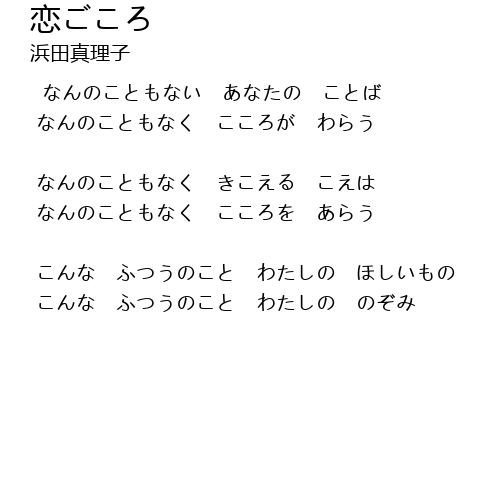 恋ごころ
浜田真理子
なんのこともない　あなたの　ことば
なんのこともなく　こころが　わらう
なんのこともなく　きこえる　こえは
なんのこともなく　こころを　あらう
こんな　ふつうのこと　わたしの　ほしいもの
こんな　ふつうのこと　わたしの　のぞみ